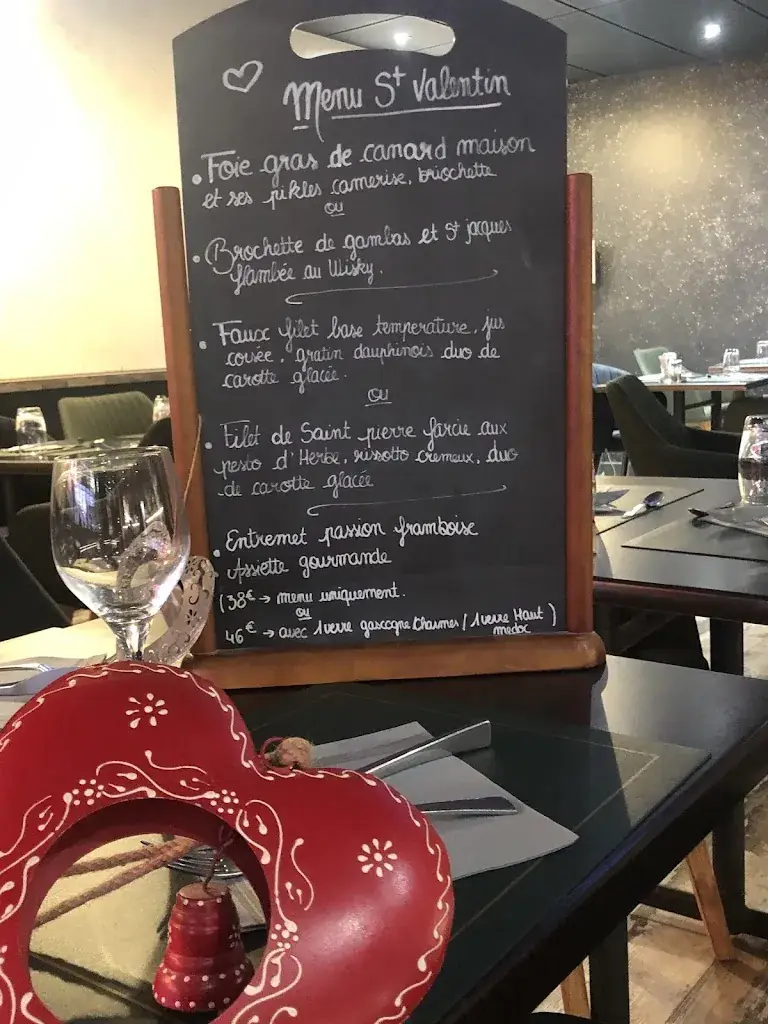 Menu St Valentin
• Foie gras de canard maison
et ses pikles camerise, briochette
ou
• Brochette de gambas et St jacques
flambée au Wisky.
• Faux filet base temperature, jus
corsée, gratin dauphinois duo de
carotte glacée.
ou
• Filet de Saint pierre farcie aux
pesto d'Herbe, rissotto cremeux, duo
de carotte glacée
• Entremet passion framboise
Assiette gourmande
(38€ → menu uniquement.
ou
46€ → avec 1 verre gascogne Charmes / 1 verre Haut )
medoc